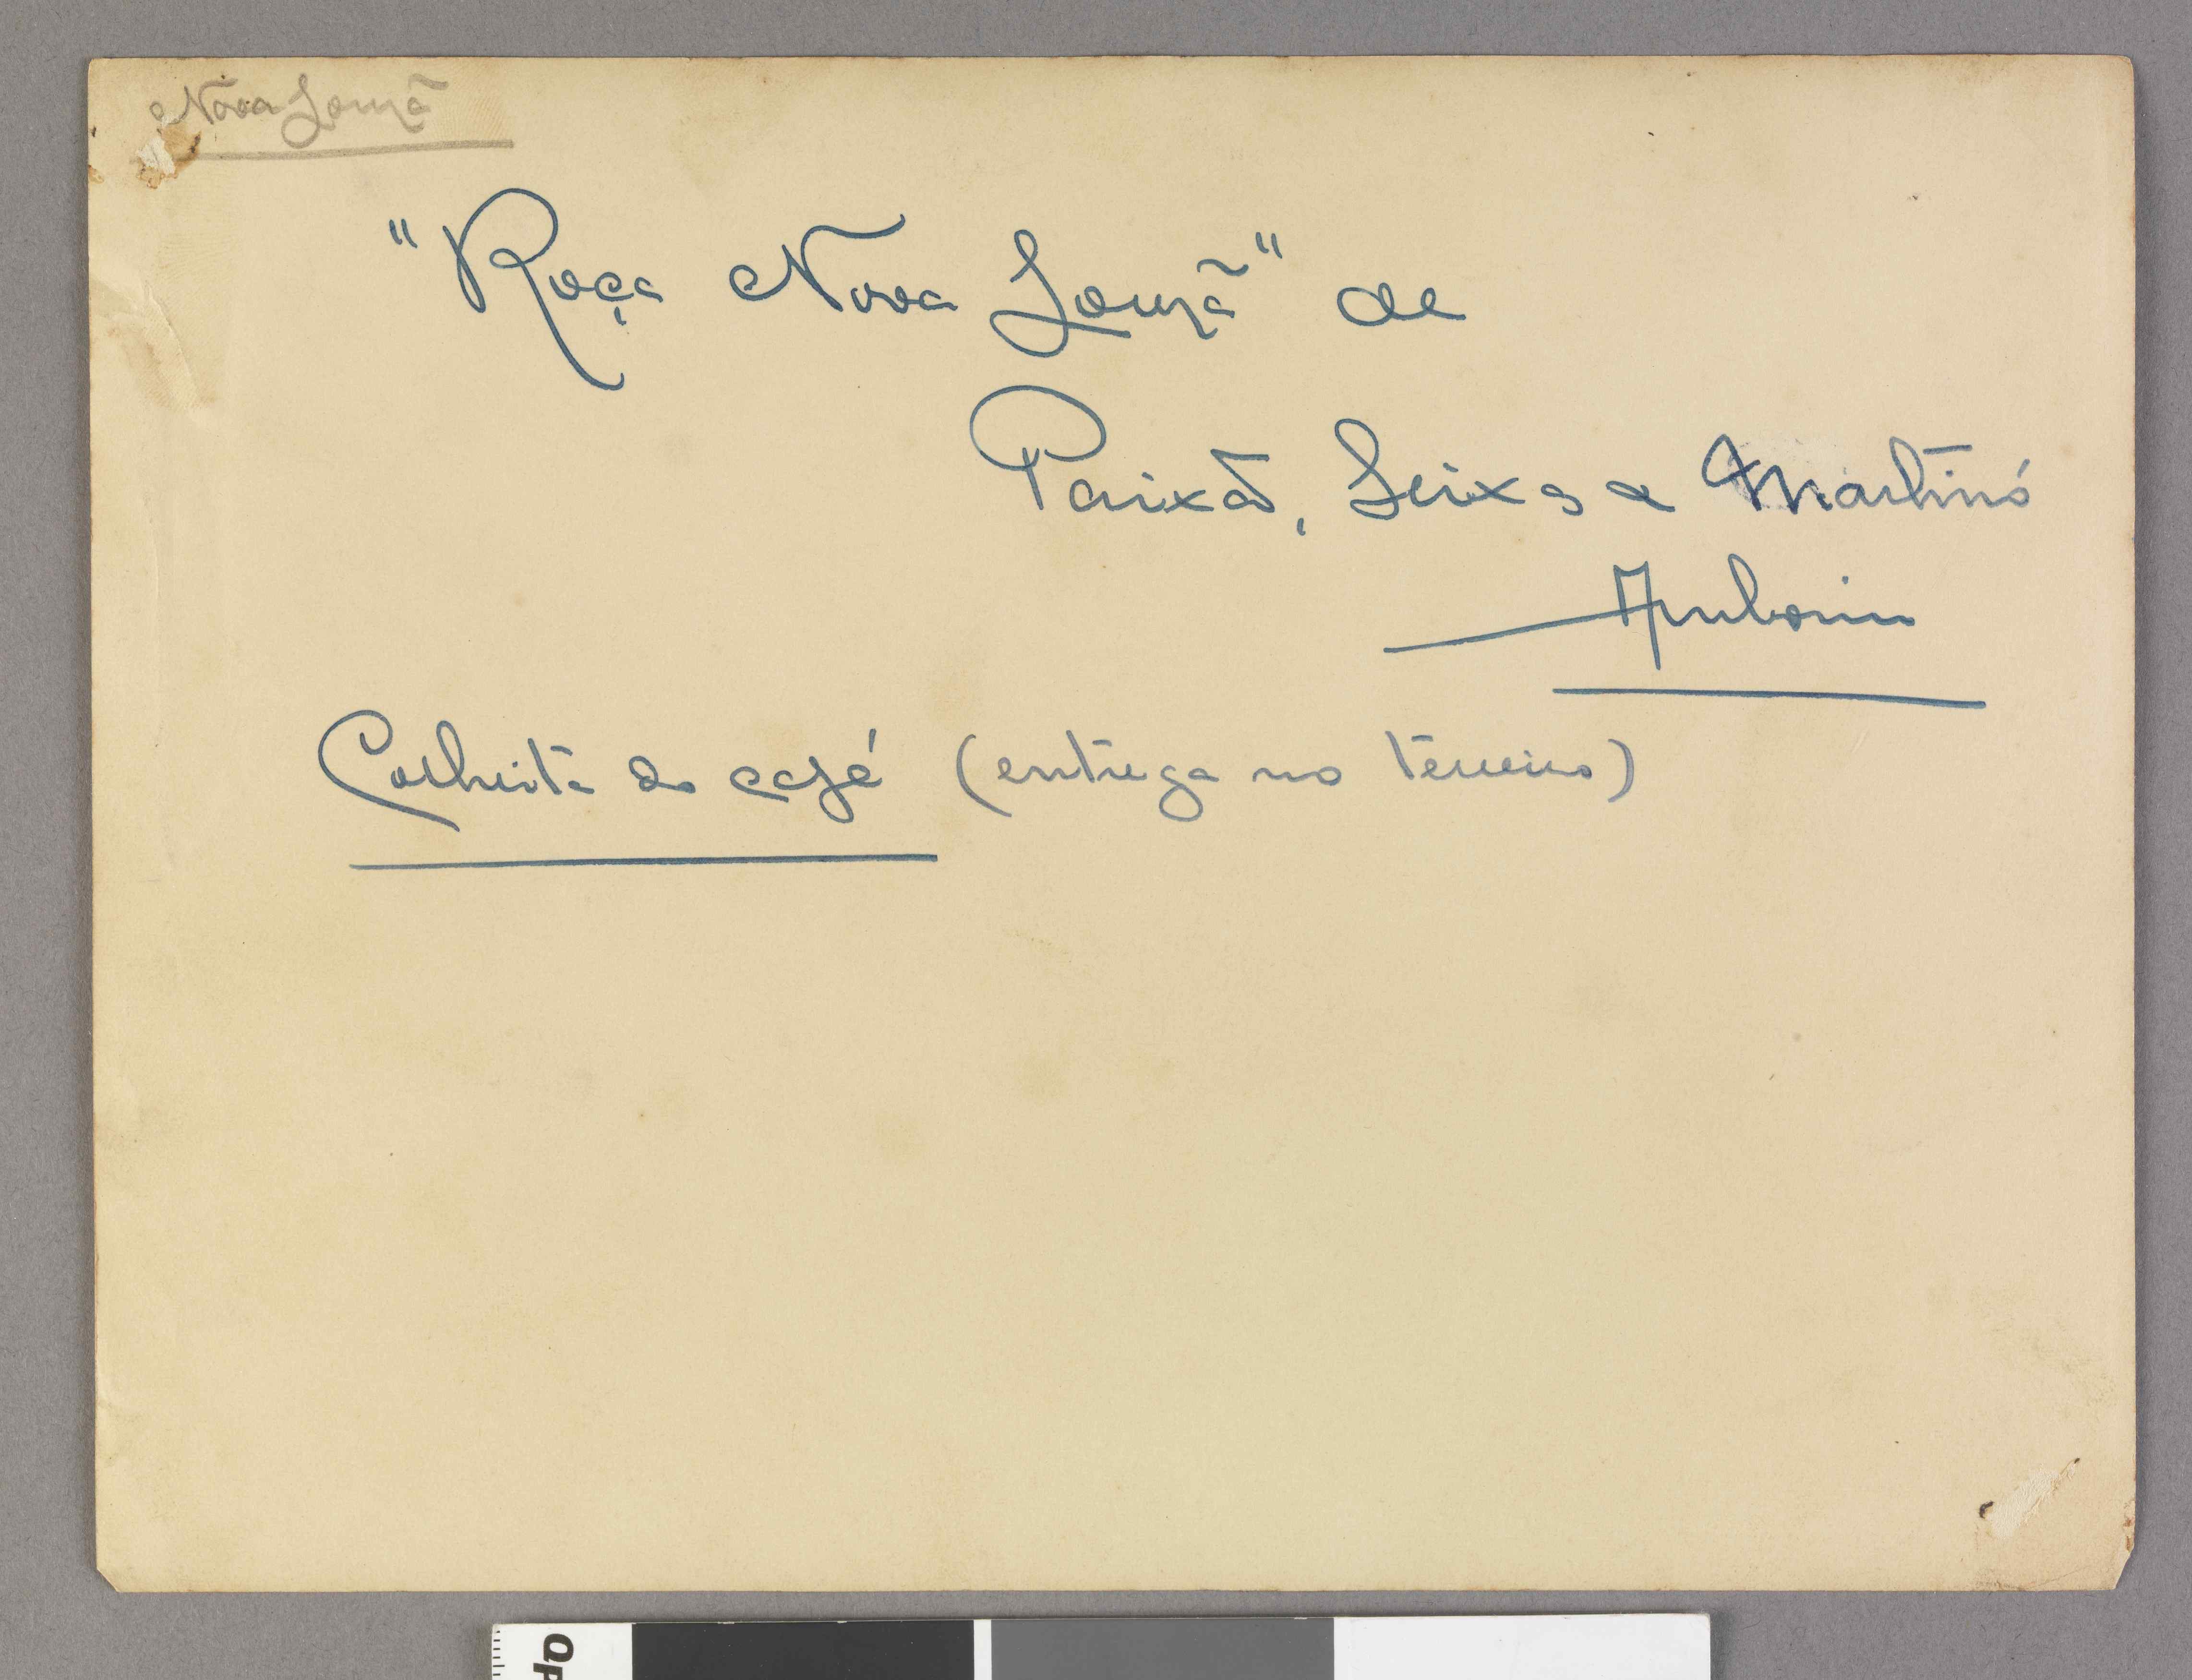 Nova Louzã
"Roça Nova Louzã" de
Paixão, Seixas e Martinó
Amboim
Colheita do café (entrega no terreiro)